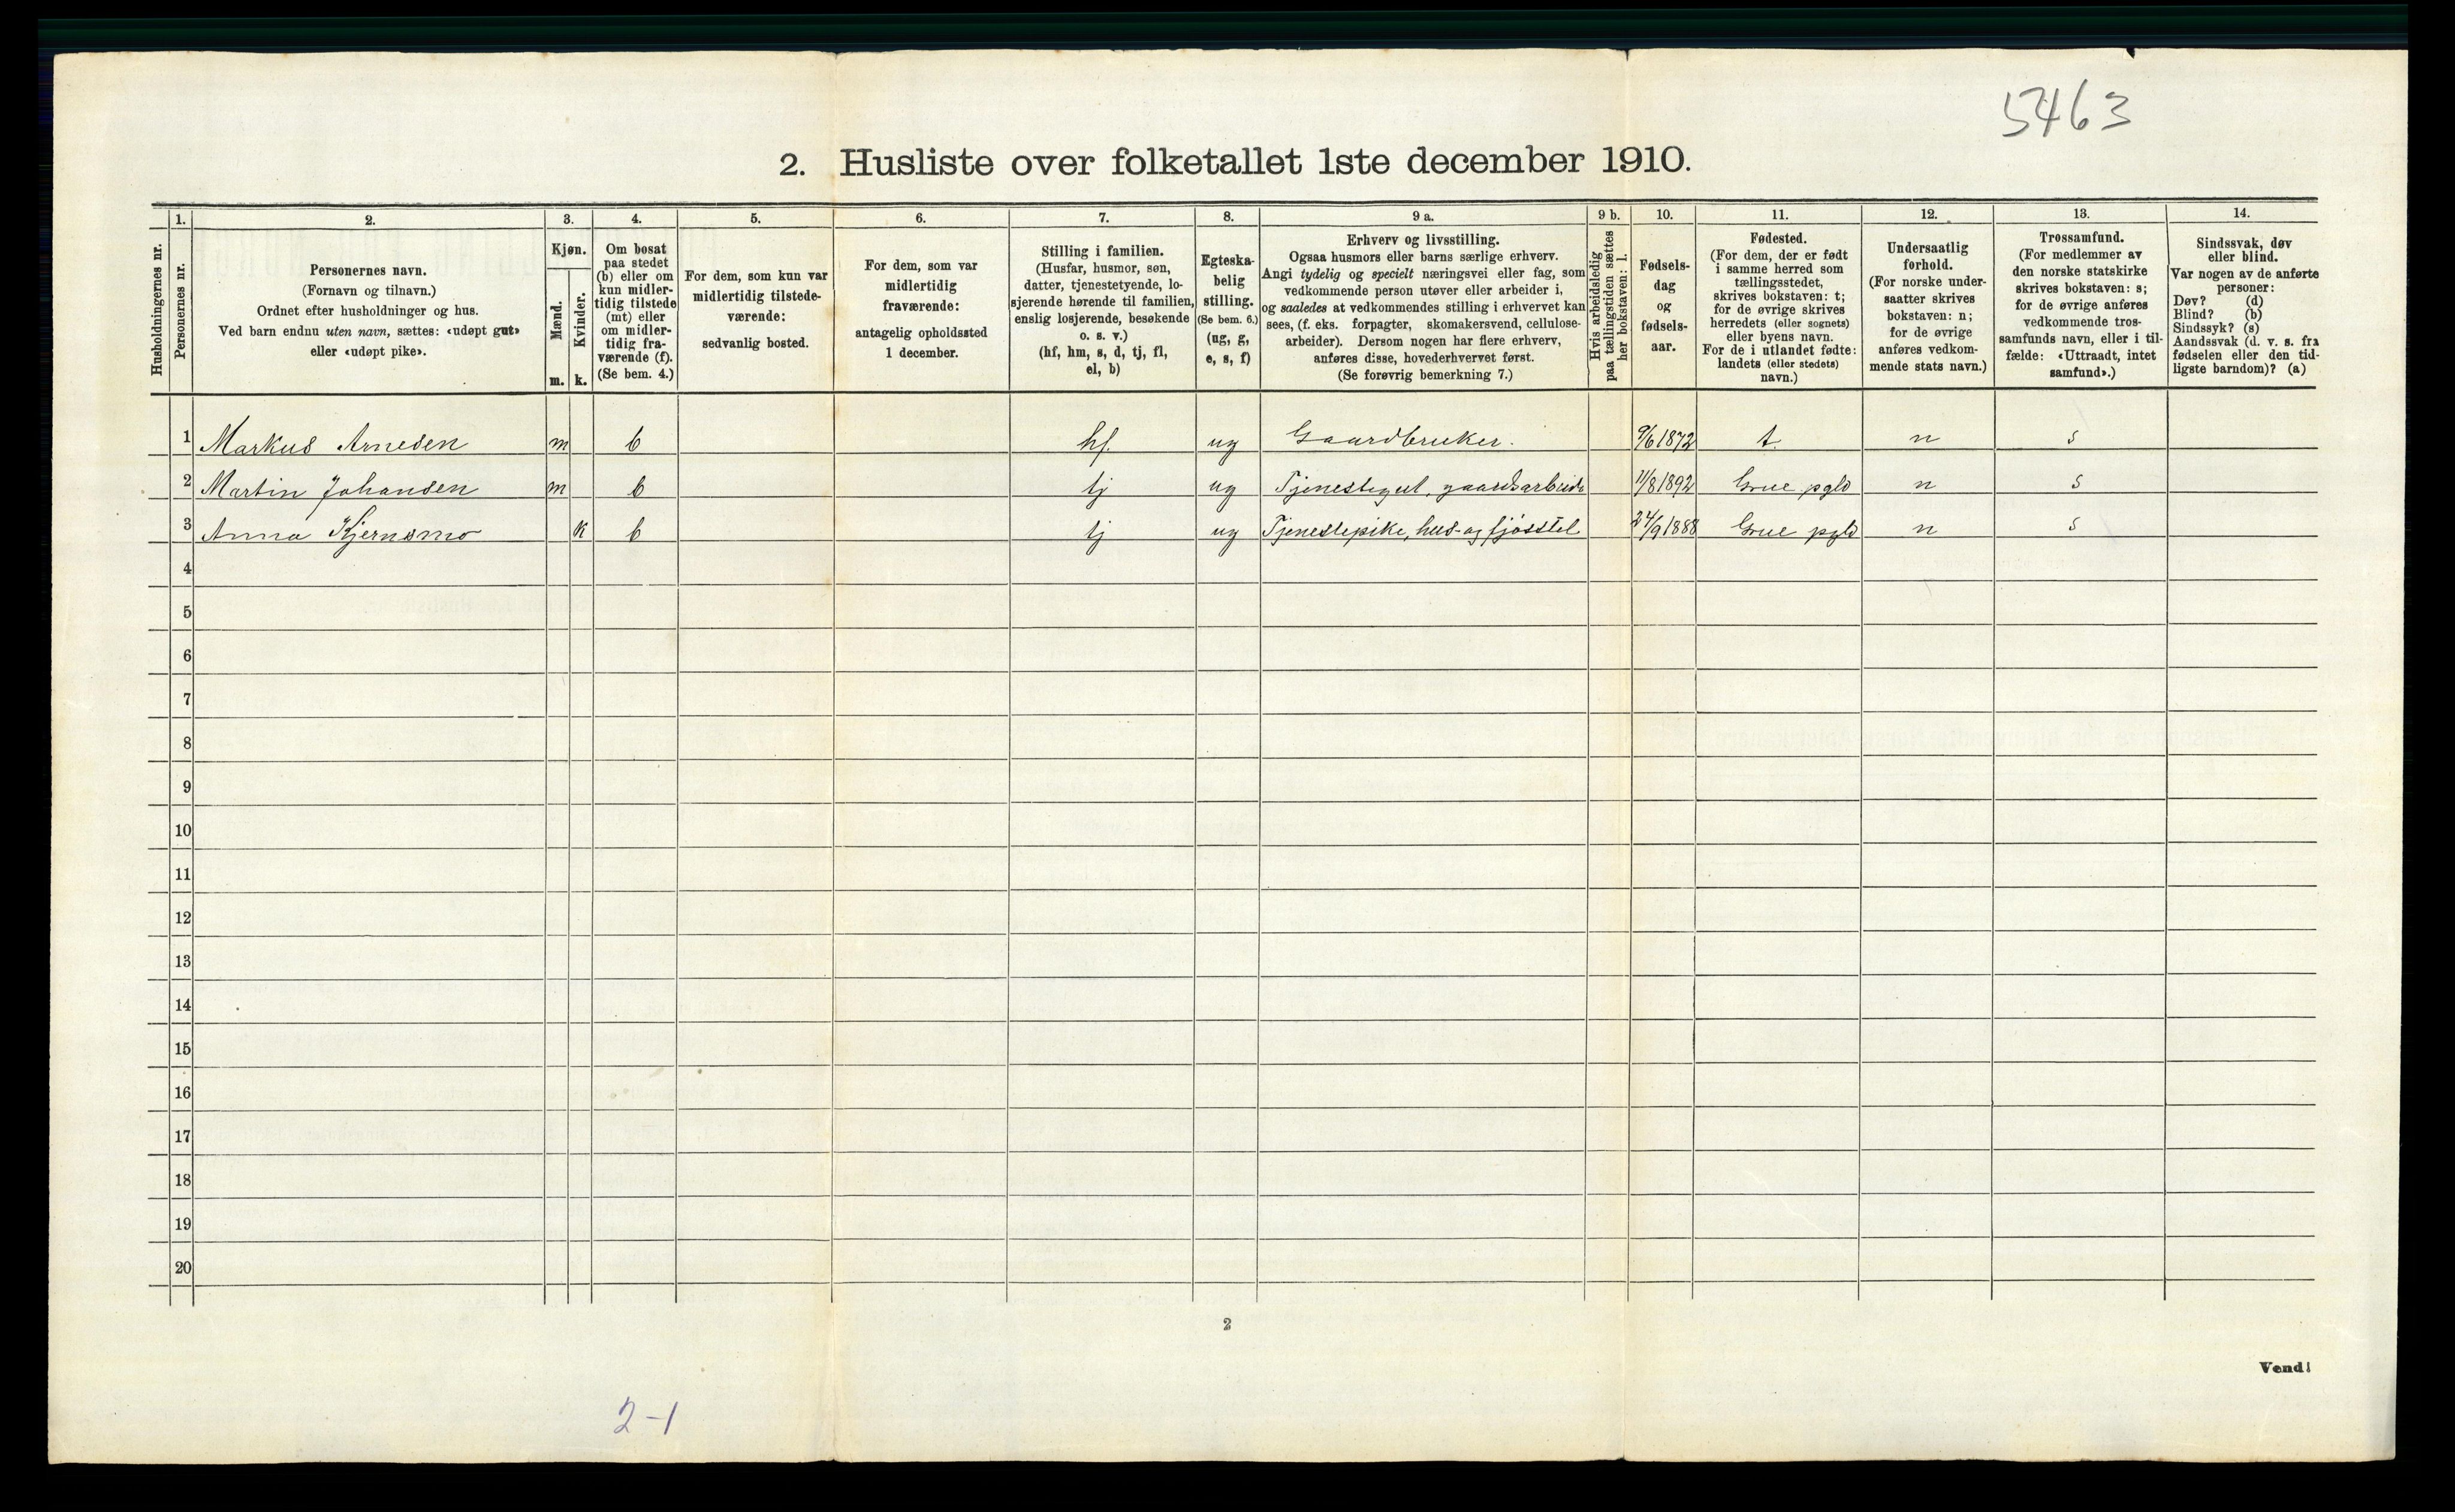 5463
2. Husliste over folketallet 1ste december 1910.
Husholdningernes nr.
1.
Personernes nr.
2.
Personernes navn.
(Fornavn og tilnavn.)
Ordnet efter husholdninger og hus.
Ved barn endnu uten navn, sættes: «udøpt gut»
eller «udøpt pike».
3.
Kjøn.
Mænd.
m.
Kvinder.
k.
4.
Om bosat
paa stedet
(b) eller om
kun midler-
tidig tilstede
(mt) eller
om midler-
tidig fra-
værende (f).
(Se bem. 4.)
5.
For dem, som kun var
midlertidig tilstede-
værende:
sedvanlig bosted.
6.
For dem, som var
midlertidig
fraværende:
antagelig opholdssted
1 december.
7.
Stilling i familien.
(Husfar, husmor, søn,
datter, tjenestetyende, lo-
sjerende hørende til familien,
enslig losjerende, besøkende
o. s. v.)
(hf, hm, s, d, tj, fl,
el, b)
8.
Egteska-
belig
stilling.
(Se bem. 6.)
(ug, g,
e, s, f)
9 a.
Erhverv og livsstilling.
Ogsaa husmors eller barns særlige erhverv.
Angi tydelig og specielt næringsvei eller fag, som
vedkommende person utøver eller arbeider i,
og saaledes at vedkommendes stilling i erhvervet kan
sees, (f. eks. forpagter, skomakersvend, cellulose-
arbeider). Dersom nogen har flere erhverv,
anføres disse, hovederhvervet først.
(Se forøvrig bemerkning 7.)
9 b.
Hvis arbeidsledig
paa tællingstiden sættes
her bokstaven: l.
10.
Fødsels-
dag
og
fødsels-
aar.
11.
Fødested.
(For dem, der er født
i samme herred som
tællingsstedet,
skrives bokstaven: t;
for de øvrige skrives
herredets (eller sognets)
eller byens navn.
For de i utlandet fødte:
landets (eller stedets)
navn.)
12.
Undersaatlig
forhold.
(For norske under-
saatter skrives
bokstaven: n;
for de øvrige
anføres vedkom-
mende stats navn.)
13.
Trossamfund.
(For medlemmer av
den norske statskirke
skrives bokstaven: s;
for de øvrige anføres
vedkommende tros-
samfunds navn, eller i til-
fælde: «Uttraadt, intet
samfund».)
14.
Sindssvak, døv
eller blind.
Var nogen av de anførte
personer:
Døv? (d)
Blind? (b)
Sindssyk? (s)
Aandssvak (d. v. s. fra
fødselen eller den tid-
ligste barndom)? (a)
1 Markus Arnesen m b hf. ug Gaardbruker. 9/6 1872 t. n s
2 Martin Johansen m b tj ug Tjenestegut, gaardsarbeide 11/8 1892 Grue pgld n s
3 Anna Kjernsmo k b tj ug Tjenestepike, hus- og fjösstel 24/9 1888 Grue pgld n s
4
5
6
7
8
9
10
11
12
13
14
15
16
17
18
19
20
2
Vend!
2-1